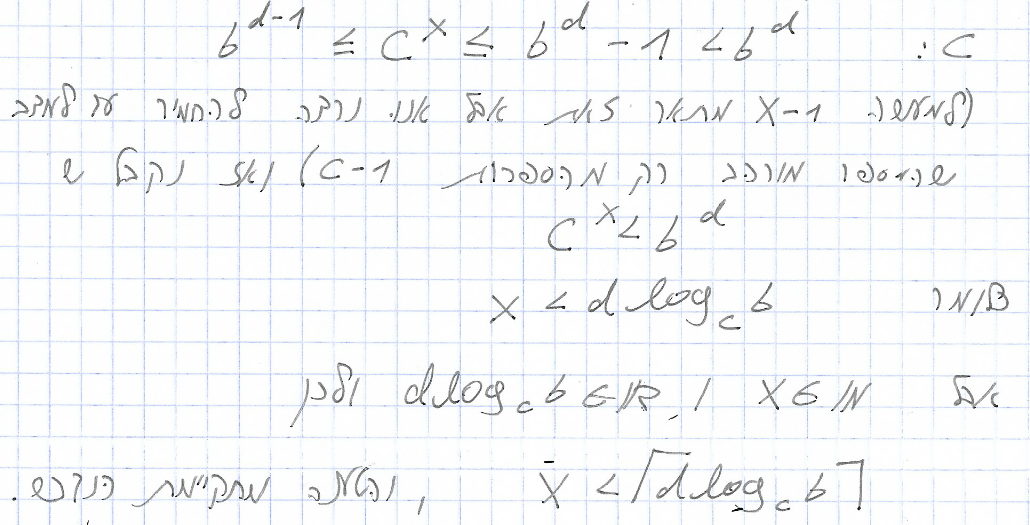 C : b^{d-1} ≤ C^x ≤ b^d - 1 < b^d
(למעשה x-1 מתאר זאת אבל אנו נרצה להחמיר עד למצב
שהמספר מורכב רק מהספרות C-1) ואז נקבל ש
C^x < b^d
כלומר x < d log_c b
אבל x ∈ ℕ ו d log_c b ∈ ℝ ולכן
x < ⌈d log_c b⌉ , והטענה מתקיימת כנדרש.